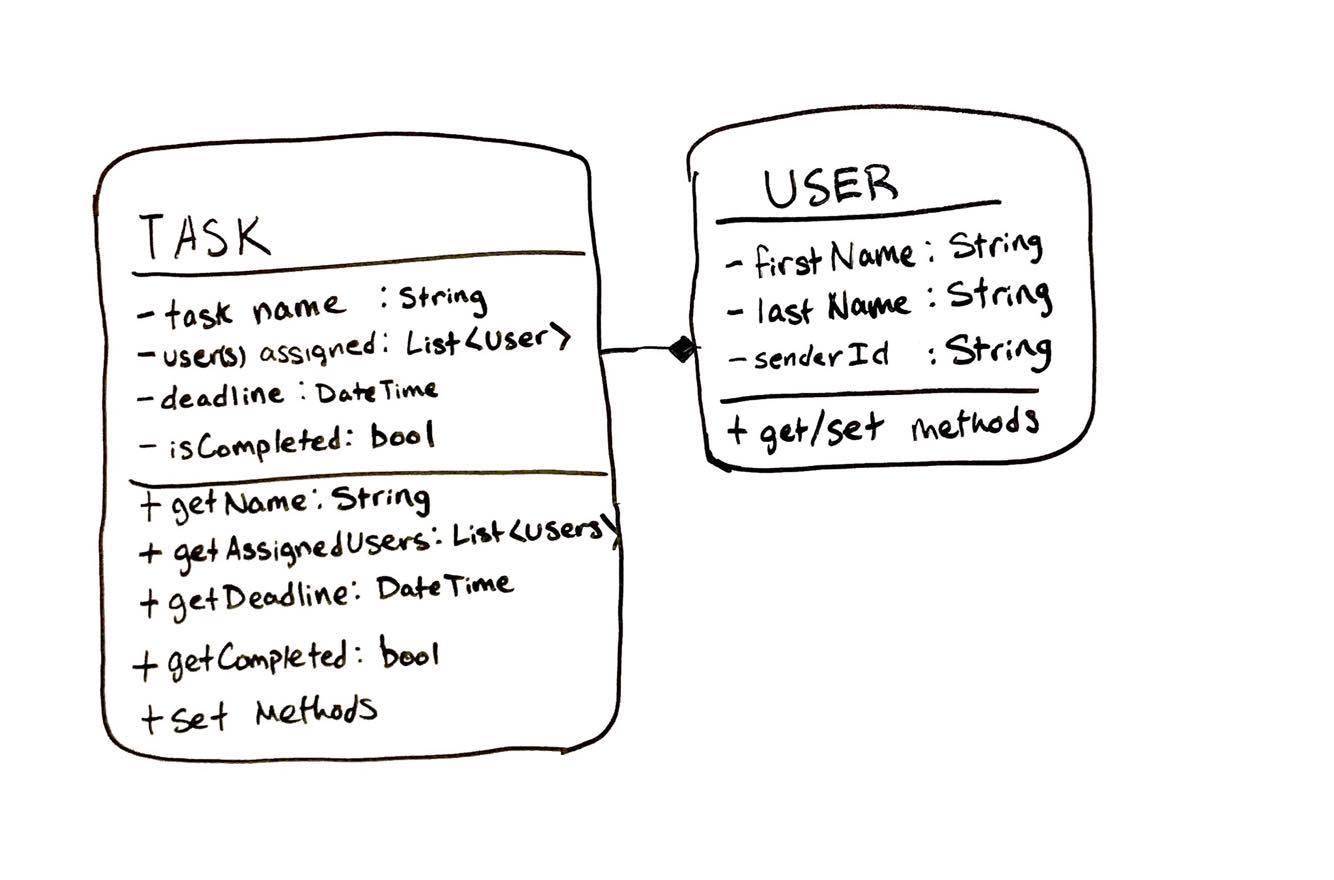 TASK
- task name : String
- user(s) assigned: List<User>
- deadline : DateTime
- isCompleted: bool
+ getName: String
+ getAssignedUsers: List<Users>
+ getDeadline: DateTime
+ getCompleted: bool
+ set methods
USER
- firstName: String
- last Name : String
- senderId : String
+ get/set methods